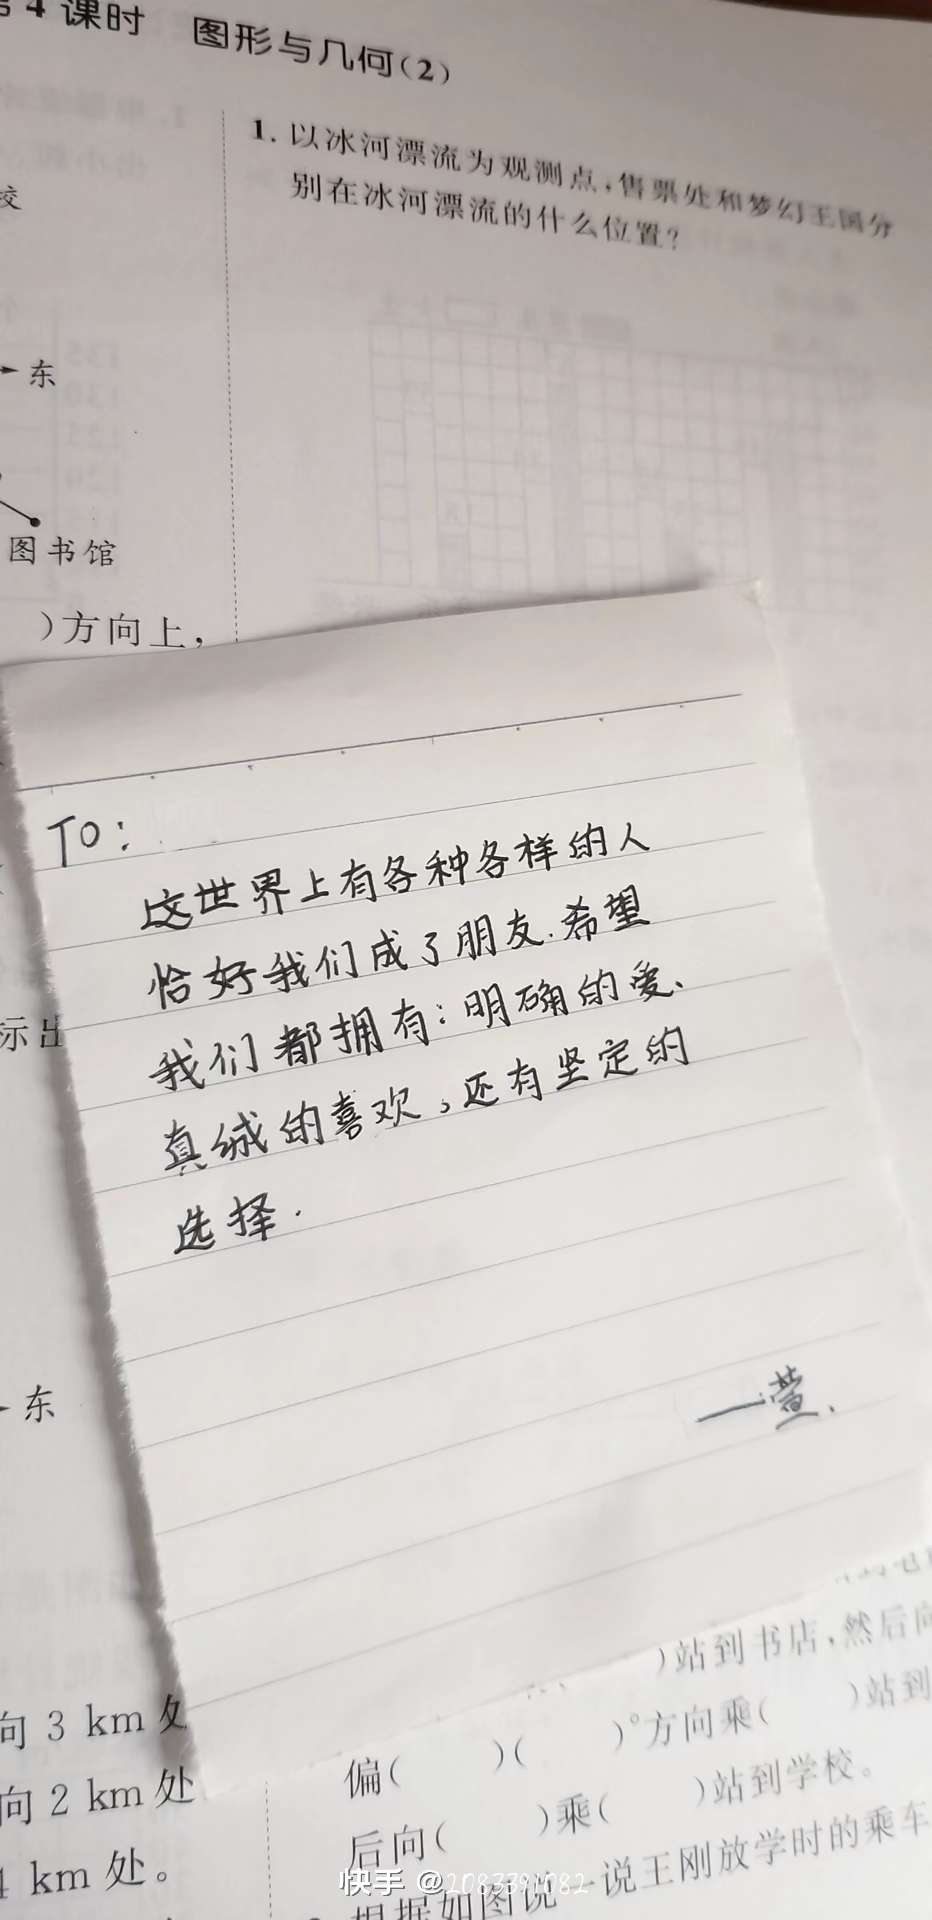 第4课时 图形与几何(2)
1. 以冰河漂流为观测点,售票处和梦幻王国分
别在冰河漂流的什么位置?
校
东
图书馆
)方向上,
TO:
这世界上有各种各样的人
恰好我们成了朋友.希望
我们都拥有:明确的爱、
真诚的喜欢,还有坚定的
选择.
一萱、
标出
东
)站到书店,然后向
向 3 km 处
偏( )( )°方向乘( )站到
向 2 km 处
后向( )乘( )站到学校。
4 km 处。
根据如图说一说王刚放学时的乘车
快手 @2083391082